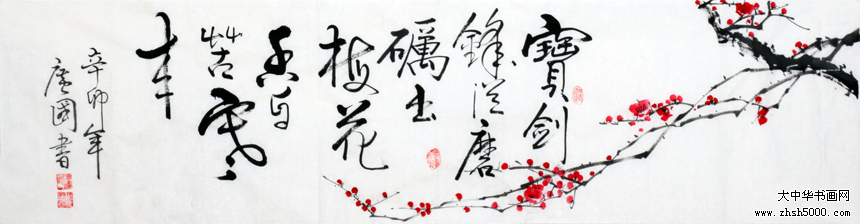 寶劍
鋒從磨
礪出
梅花
香自
苦寒
来
辛卯年
國書
大中华书画网
www.zhsh5000.com